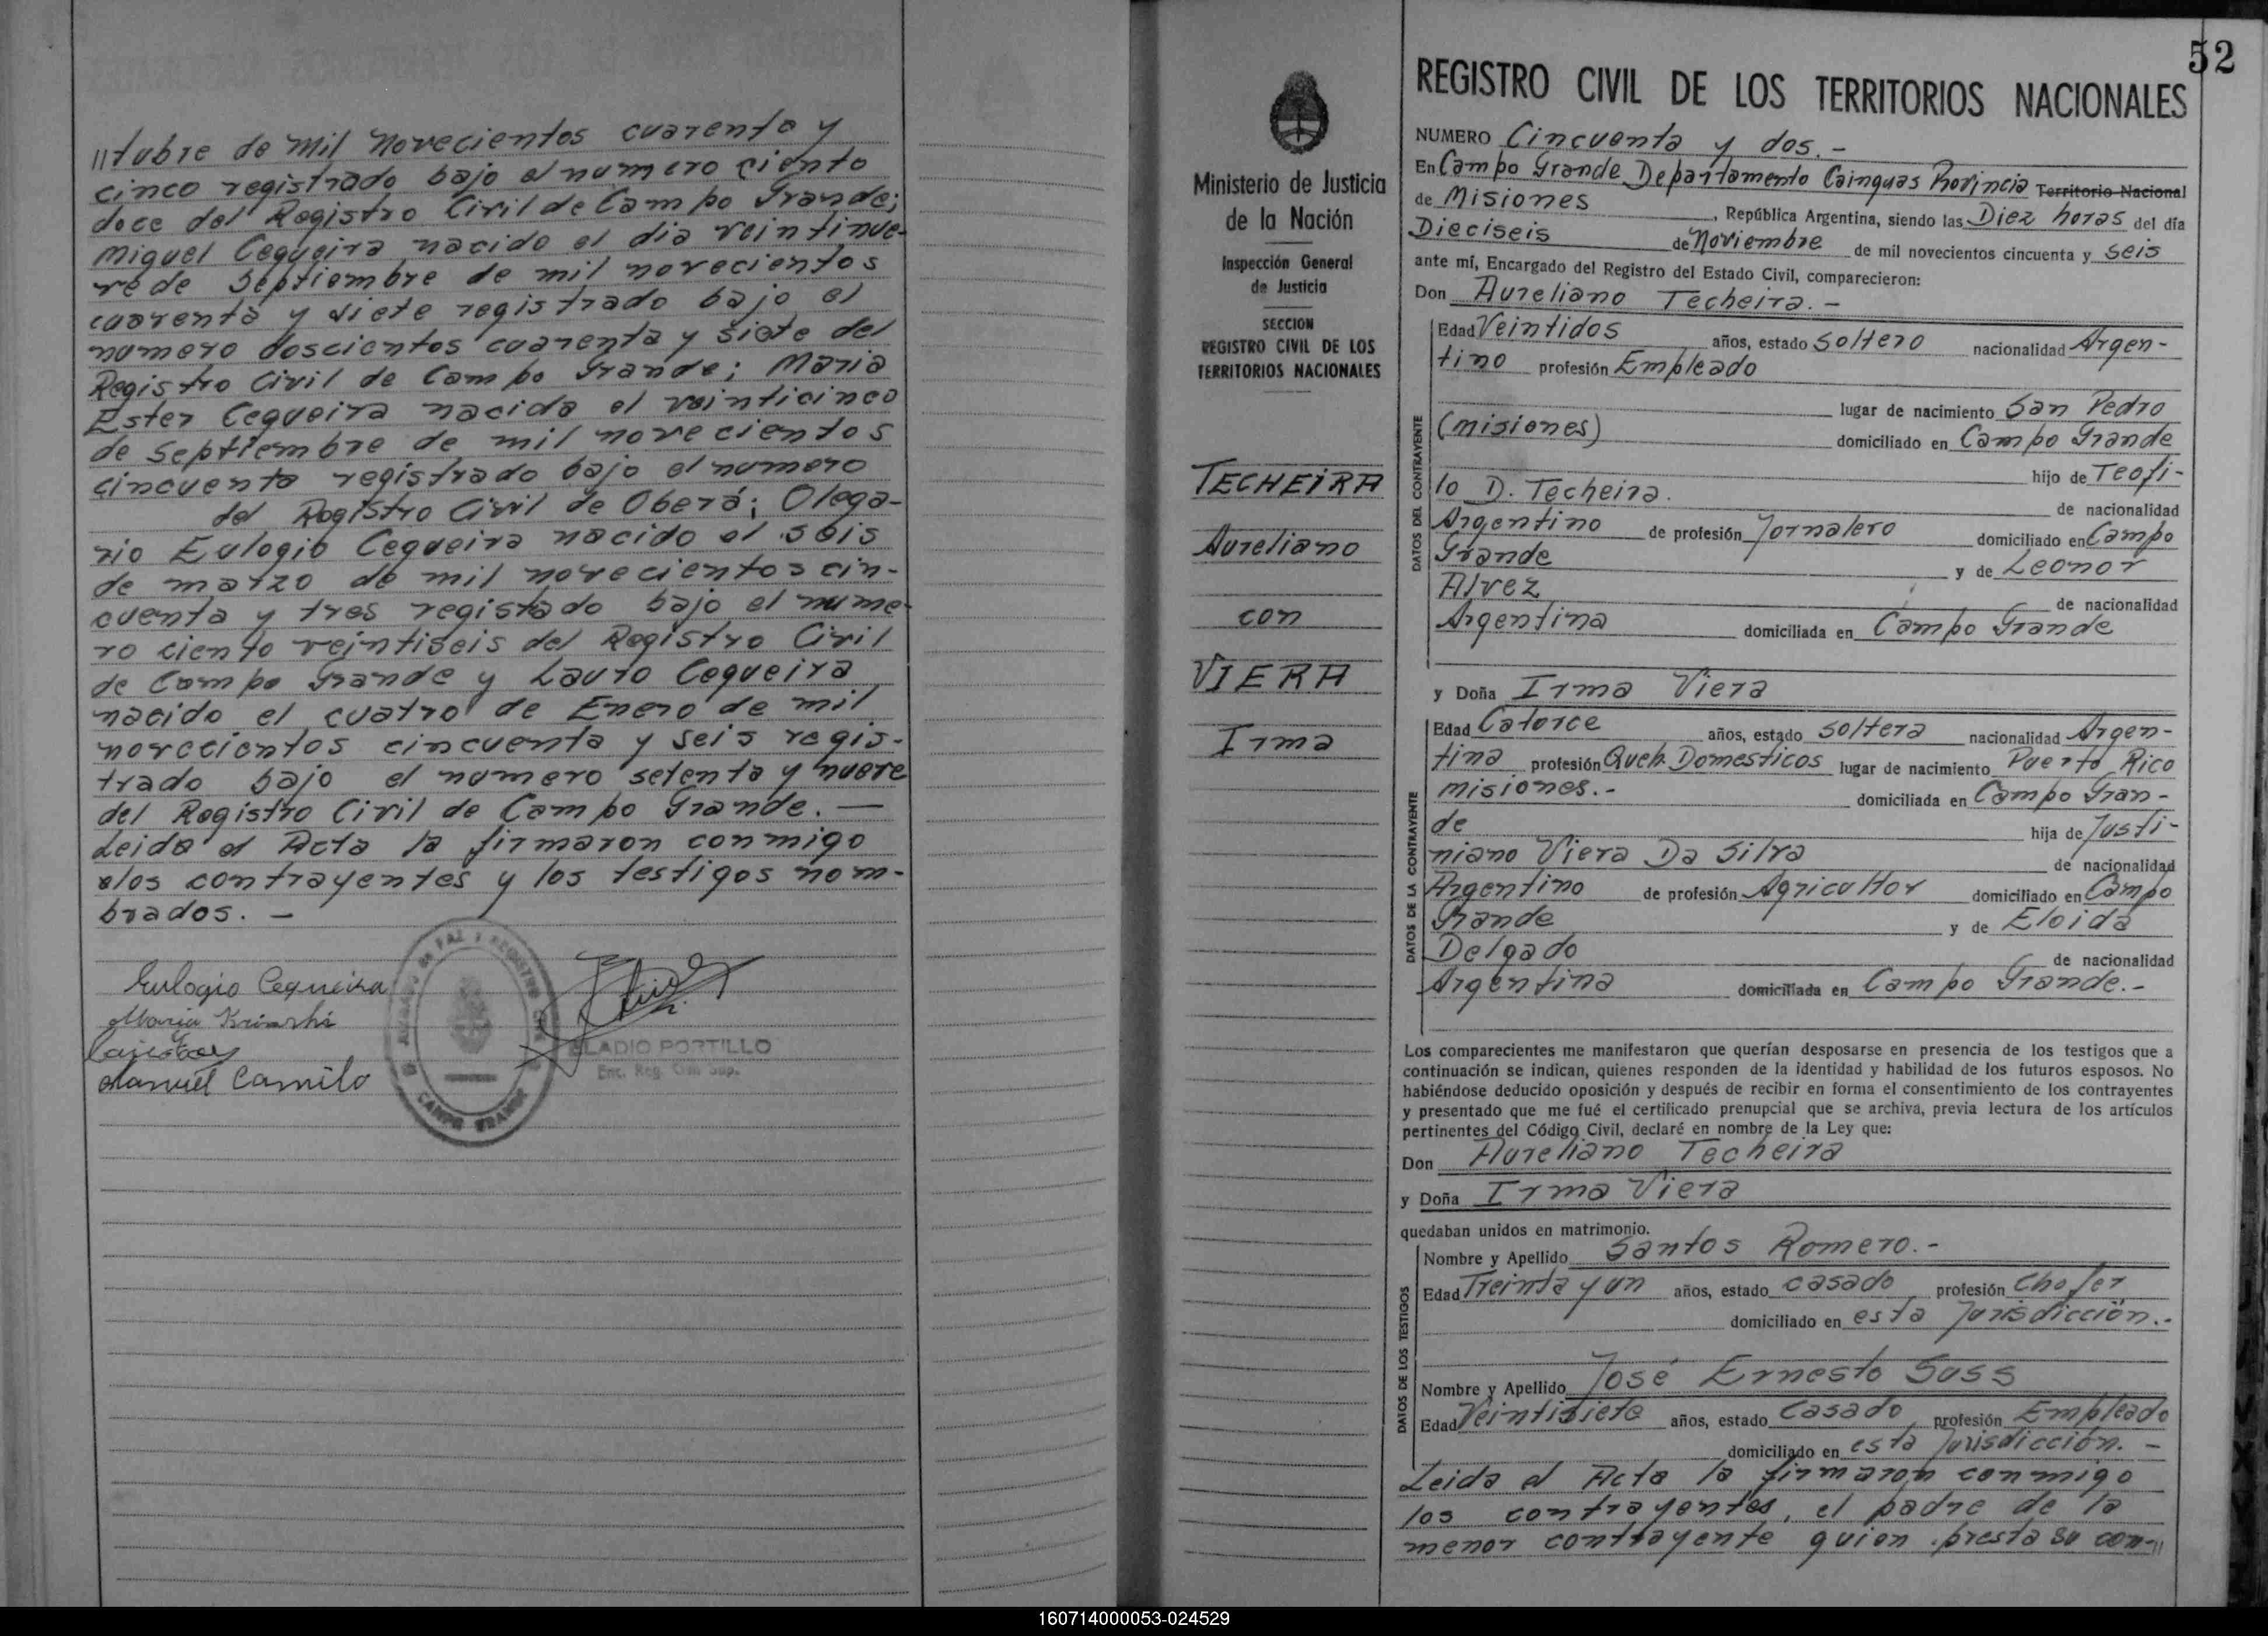 //tubre de mil novecientos cuarenta y
cinco registrado bajo el numero ciento
doce del Registro Civil de Campo Grande;
Miguel Cequeira nacido el dia veintinue-
ve de Septiembre de mil novecientos
cuarenta y siete registrado bajo el
numero doscientos cuarenta y siete del
Registro Civil de Campo Grande; Maria
Ester Cequeira nacida el veinticinco
de septiembre de mil novecientos
cincuenta registrado bajo el numero
del Registro Civil de Oberá; Olega-
rio Eulogio Cequeira nacido el seis
de marzo de mil novecientos cin-
cuenta y tres registado bajo el nume-
ro ciento veintiseis del Registro Civil
de Campo Grande y Lauro Cequeira
nacido el cuatro de Enero de mil
novecientos cincuenta y seis regis-
trado bajo el numero setenta y nueve
del Registro Civil de Campo Grande. —
Leida el Acta la firmaron conmigo
los contrayentes y los testigos nom-
brados. -
Eulogio Cequeira
Maria
Manuel Camilo
CAMPO GRANDE
ELADIO PORTILLO
Enc. Reg. Civil Sup.
52
Ministerio de Justicia
de la Nación
Inspección General
de Justicia
SECCION
REGISTRO CIVIL DE LOS
TERRITORIOS NACIONALES
TECHEIRA
Aureliano
con
VIERA
Irma
REGISTRO CIVIL DE LOS TERRITORIOS NACIONALES
NUMERO Cincuenta y dos. -
En Campo Grande Departamento Cainguas Provincia Territorio Nacional
de Misiones, República Argentina, siendo las Diez horas del día
Dieciseis de Noviembre de mil novecientos cincuenta y seis
ante mí, Encargado del Registro del Estado Civil, comparecieron:
Don Aureliano Techeira. -
DATOS DEL CONTRAYENTE
Edad Veintidos años, estado soltero nacionalidad Argen-
tino profesión Empleado
lugar de nacimiento San Pedro
(misiones) domiciliado en Campo Grande
hijo de Teofi-
lo D. Techeira. de nacionalidad
Argentino de profesión Jornalero domiciliado en Campo
Grande y de Leonor
Alvez de nacionalidad
Argentina domiciliada en Campo Grande
y Doña Irma Viera
DATOS DE LA CONTRAYENTE
Edad Catorce años, estado soltera nacionalidad Argen-
tina profesión Queh. Domesticos lugar de nacimiento Puerto Rico
misiones. - domiciliada en Campo Gran-
de hija de Justi-
niano Viera Da Silva de nacionalidad
Argentino de profesión Agricultor domiciliado en Campo
Grande y de Eloida
Delgado de nacionalidad
Argentina domiciliada en Campo Grande. -
Los comparecientes me manifestaron que querían desposarse en presencia de los testigos que a
continuación se indican, quienes responden de la identidad y habilidad de los futuros esposos. No
habiéndose deducido oposición y después de recibir en forma el consentimiento de los contrayentes
y presentado que me fué el certificado prenupcial que se archiva, previa lectura de los artículos
pertinentes del Código Civil, declaré en nombre de la Ley que:
Don Aureliano Techeira
y Doña Irma Viera
quedaban unidos en matrimonio.
DATOS DE LOS TESTIGOS
Nombre y Apellido Santos Romero. -
Edad Treinta y un años, estado casado profesión Chofer
domiciliado en esta Jurisdicción. -
Nombre y Apellido José Ernesto Suss
Edad Veintisiete años, estado Casado profesión Empleado
domiciliado en esta Jurisdicción. -
Leida el Acta la firmaron conmigo
los contrayentes, el padre de la
menor contrayente quien presta su con-//
160714000053-024529